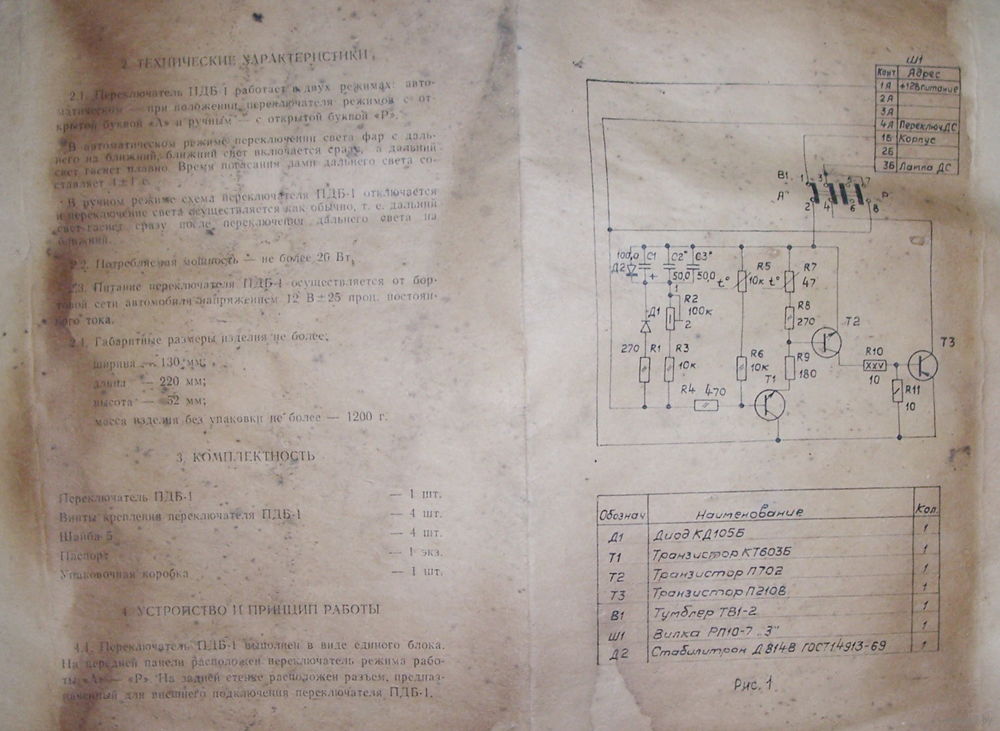 2. ТЕХНИЧЕСКИЕ ХАРАКТЕРИСТИКИ
2.1. Переключатель ПДБ-1 работает в двух режимах: авто-
матическом — при положении переключателя режимов с от-
крытой буквой «А» и ручным — с открытой буквой «Р».
В автоматическом режиме переключении света фар с даль-
него на ближний, ближний свет включается сразу, а дальний
свет гаснет плавно. Время погасания ламп дальнего света со-
ставляет 4±1 с.
В ручном режиме схема переключателя ПДБ-1 отключается
и переключение света осуществляется как обычно, т. е. дальний
свет гаснет сразу после переключения дальнего света на
ближний.
2.2. Потребляемая мощность — не более 20 Вт.
2.3. Питание переключателя ПДБ-1 осуществляется от бор-
товой сети автомобиля напряжением 12 В±25 проц. постоян-
ного тока.
2.4. Габаритные размеры изделия не более:
ширина — 130 мм;
длина — 220 мм;
высота — 52 мм;
масса изделия без упаковки не более — 1200 г.
3. КОМПЛЕКТНОСТЬ
Переключатель ПДБ-1 — 1 шт.
Винты крепления переключателя ПДБ-1 — 4 шт.
Шайба 5 — 4 шт.
Паспорт — 1 экз.
Упаковочная коробка — 1 шт.
4. УСТРОЙСТВО И ПРИНЦИП РАБОТЫ
4.1. Переключатель ПДБ-1 выполнен в виде единого блока.
На передней панели расположен переключатель режима рабо-
ты «А» — «Р». На задней стенке расположен разъем, предназ-
наченный для внешнего подключения переключателя ПДБ-1.
Ш1
Конт Адрес
1А +12В питание
2А
3А
4А Переключ ДС
1Б Корпус
2Б
3Б Лампа ДС
В1 1 3 5 7
"А" Р
2 4 6 8
100,0 С1 С2* С3*
Д2 + 50,0 50,0 t° R5 R7
10к t° 47
1
R2
Д1 100к R8
2 270 Т2
270 R1 R3 R6 R9 R10 Т3
10к 10к 180 10
R4 470 Т1 R11
10
Обознач Наименование Кол.
Д1 Диод КД105Б 1
Т1 Транзистор КТ603Б 1
Т2 Транзистор П702 1
Т3 Транзистор П210В 1
В1 Тумблер ТВ1-2 1
Ш1 Вилка РП10-7 „3" 1
Д2 Стабилитрон Д814В ГОСТ14913-69 1
Рис. 1